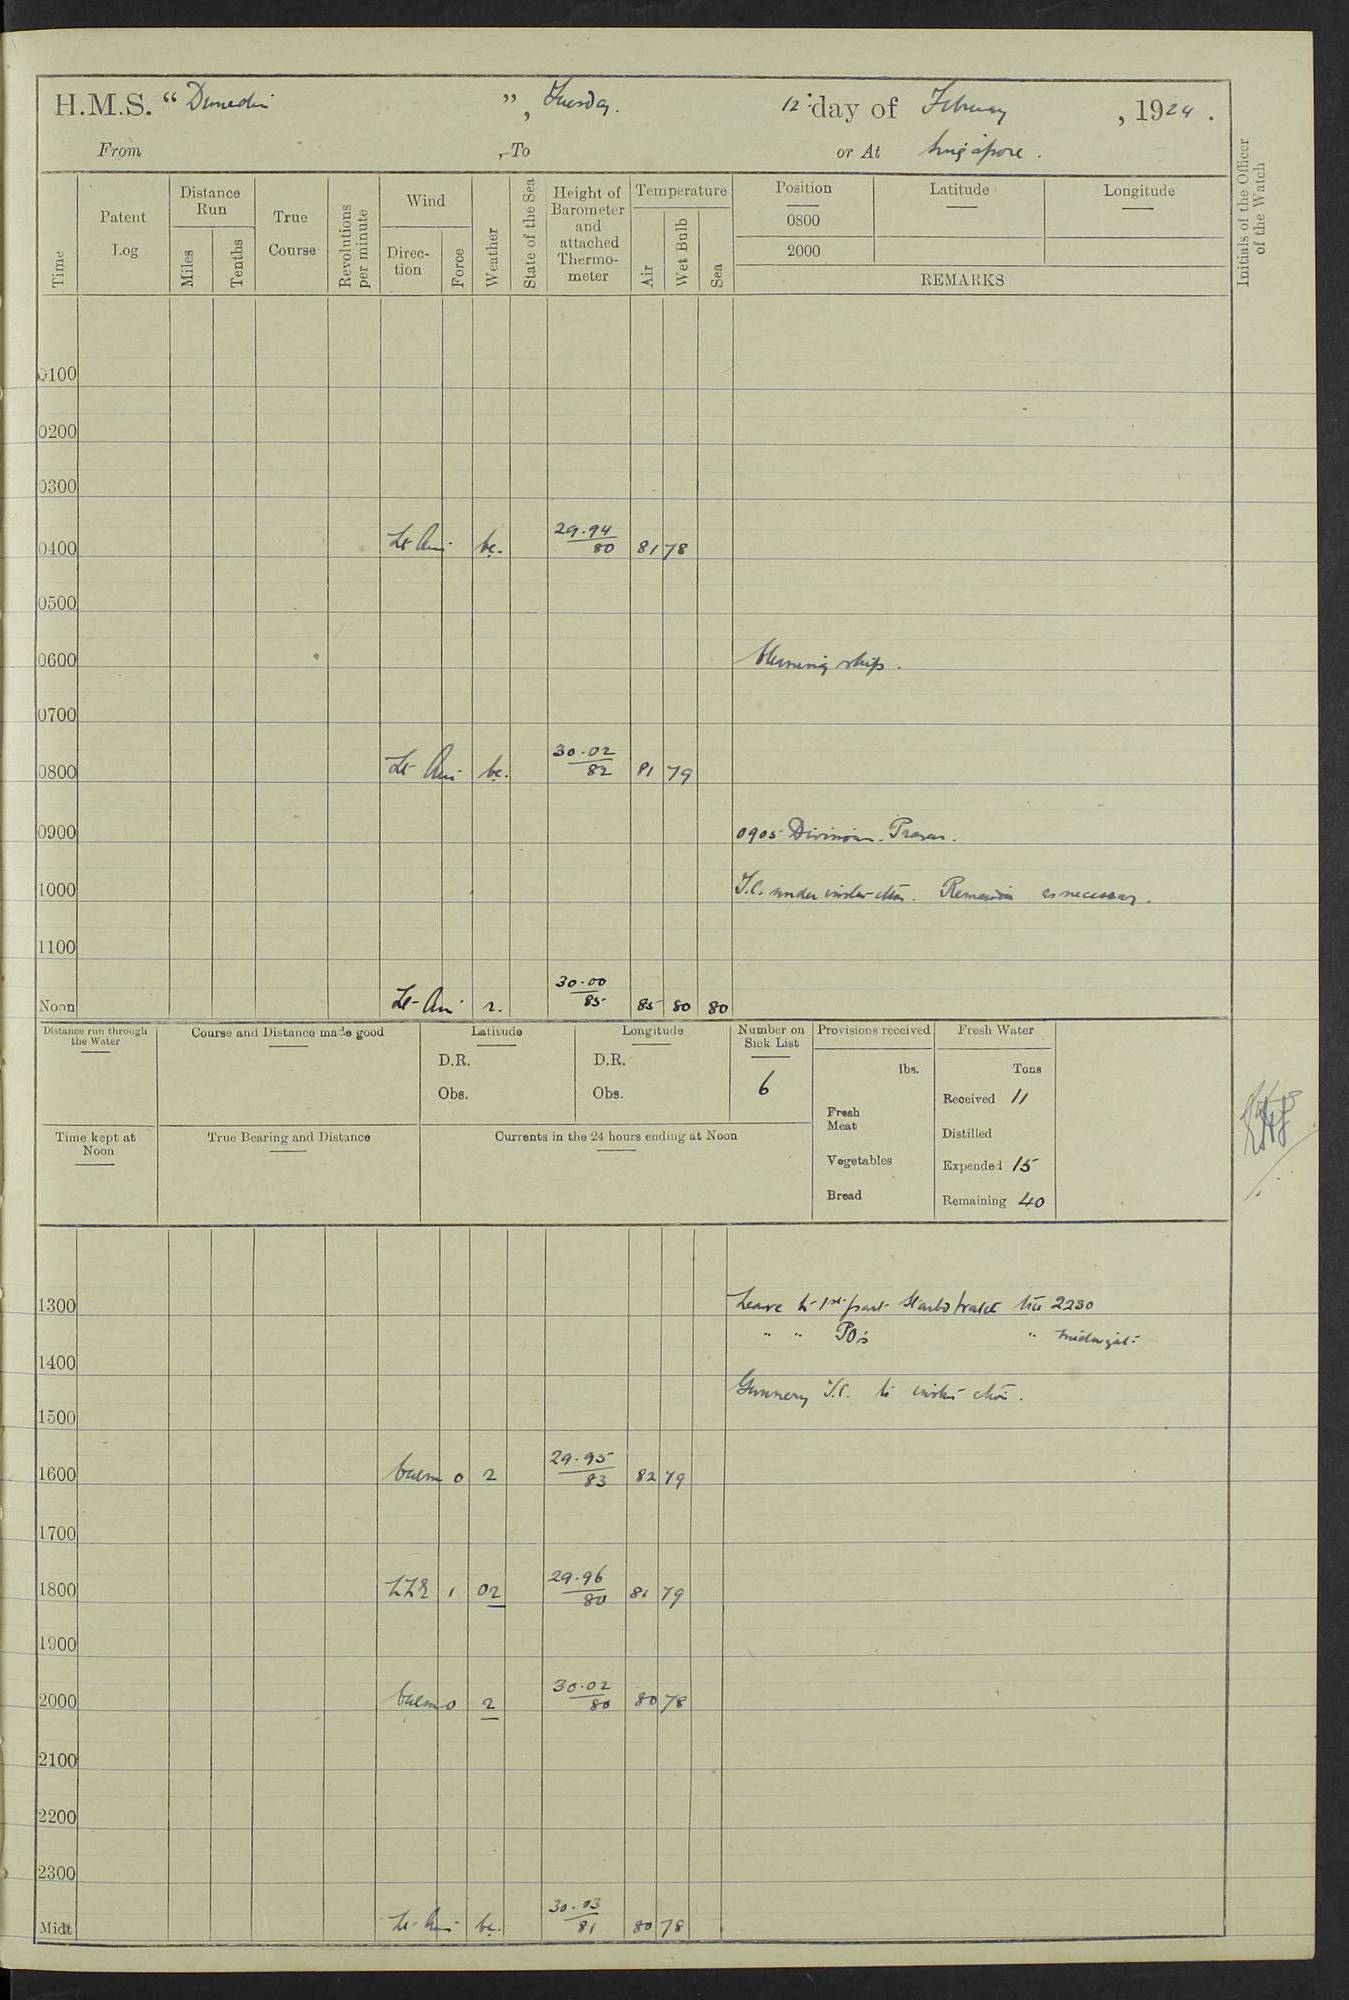 H.M.S. “ Dunedin ”, Tuesday. 12th day of February, 1924.
From , To or At Singapore.
Time
Patent Log
Distance Run
Miles
Tenths
True Course
Revolutions per minute
Wind
Direction
Force
Weather
State of the Sea
Height of Barometer and attached Thermometer
Temperature
Air
Wet Bulb
Sea
Position
Latitude
Longitude
0800
2000
REMARKS
Initials of the Officer of the Watch
0100
0200
0300
0400 Lt Airs bc. 29.94/80 81 78
0500
0600 Cleaning ship.
0700
0800 Lt Airs bc. 30.02/82 81 79
0900 0905 Divisions. Prayers.
1000 T.C. under instruction. Remainder as necessary.
1100
Noon Lt Airs r. 30.00/85 85 80 80
Distance run through the Water
Course and Distance made good
Latitude
D.R.
Obs.
Longitude
D.R.
Obs.
Number on Sick List
6
Provisions received
lbs.
Fresh Meat
Vegetables
Bread
Fresh Water
Tons
Received 11
Distilled
Expended 15
Remaining 40
Time kept at Noon
True Bearing and Distance
Currents in the 24 hours ending at Noon
1300 Leave to 1st part Starbd watch till 2230
" " PO's " midnight
1400
Gunnery T.C. to instruction.
1500
1600 Calm 0 r 29.95/83 82 79
1700
1800 1 or 29.96/80 81 79
1900
2000 Calm 0 r 30.02/80 80 78
2100
2200
2300
Midt Lt Airs bc. 30.03/81 80 78